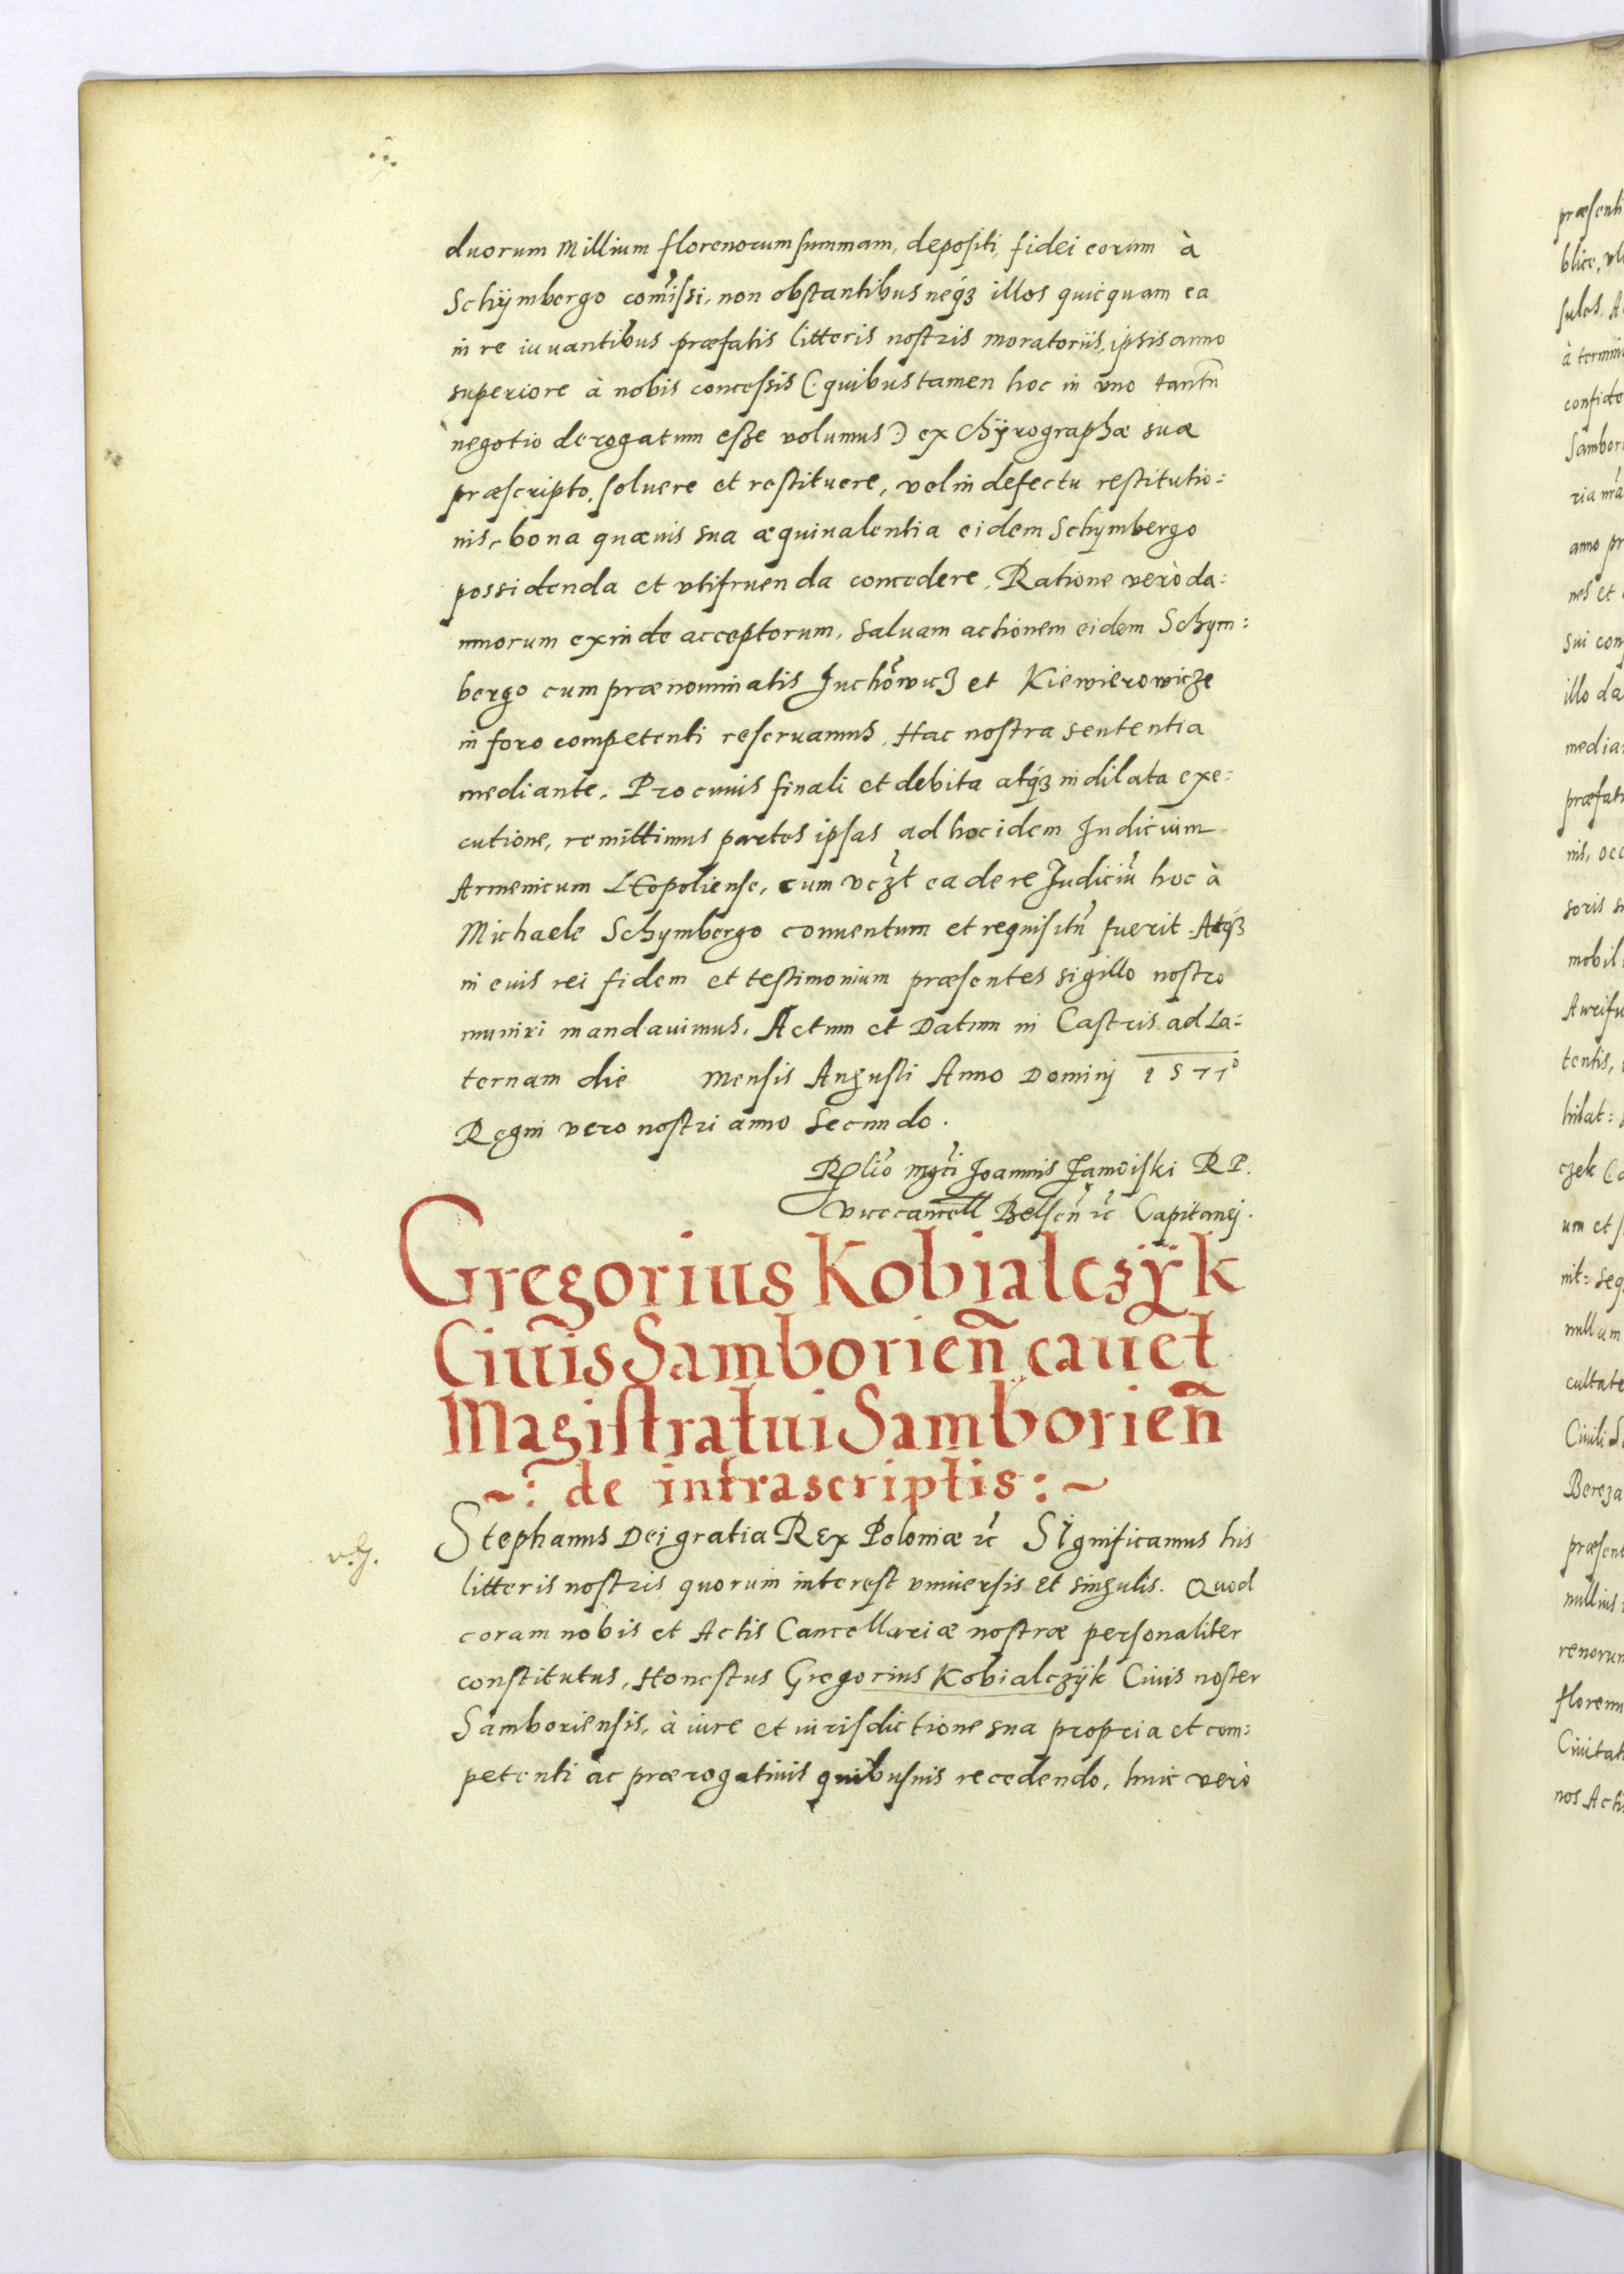 duorum Millium florenorum summam, depositi, fidei eorum à
Schÿmbergo com̃issi, non obstantibus neq́ꝫ illos quicquam ea
in re iuuantibus præfatis litteris nostris moratoriis, ipsis anno
superiore à nobis concessis (: quibus tamen hoc in vno tantũ
negotio derogatum esse volumus :) ex Chÿrographæ suæ
præscripto, soluere et restituere, vel in defectu restitutio:
nis, bona quæuis sua æquiualentia eidem Schÿmbergo
possidenda et vtifruenda concedere. Ratione verò da:
mnorum exinde acceptorum, saluam actionem eidem Schym:
bergo cum prænominatis Juchowicz et Kiewierowicze
in foro competenti reseruamus. Hac nostra sententia
mediante. Pro cuius finali et debita atq́ꝫ indilata exe:
cutione, remittimus partes ipsas ad hoc idem Judicium
Armenicum LEopoliense, cum vczt ea de re Judiciũ hoc à
Michaele Schymbergo conuentum et requisitũ fuerit. Atq́ꝫ
in euis rei fidem et testimonium præsentes sigillo nostro
muniri mandauimus. Actum et Datum in Castris ad La:
ternam die mensis Augusti Anno Dominj 1577º
Regni vero nostri anno secundo.
Rlió mgci Joannis Zamoiski R P.
vicecancell Belsen̄ ꝛc̃ Capitanej.
Gregorius Kobialczÿk
Ciuis Samborien̄ cauet
Magistratui Samborien̄
~: de infrascriptis: ~
v.g.
Stephanus Dej gratia REx Poloniæ ꝛc̃ SIgnificamus his
litteris nostris quorum interest vniuersis et singulis. Quod
coram nobis et Actis Cancellariæ nostræ personaliter
constitutus, Honestus Gregorius Kobialczÿk Ciuis noster
Samboriensis, à iure et iurisdictione sua propria et com:
petenti ac prærogatiuis quibusuis recedendo, huic verò